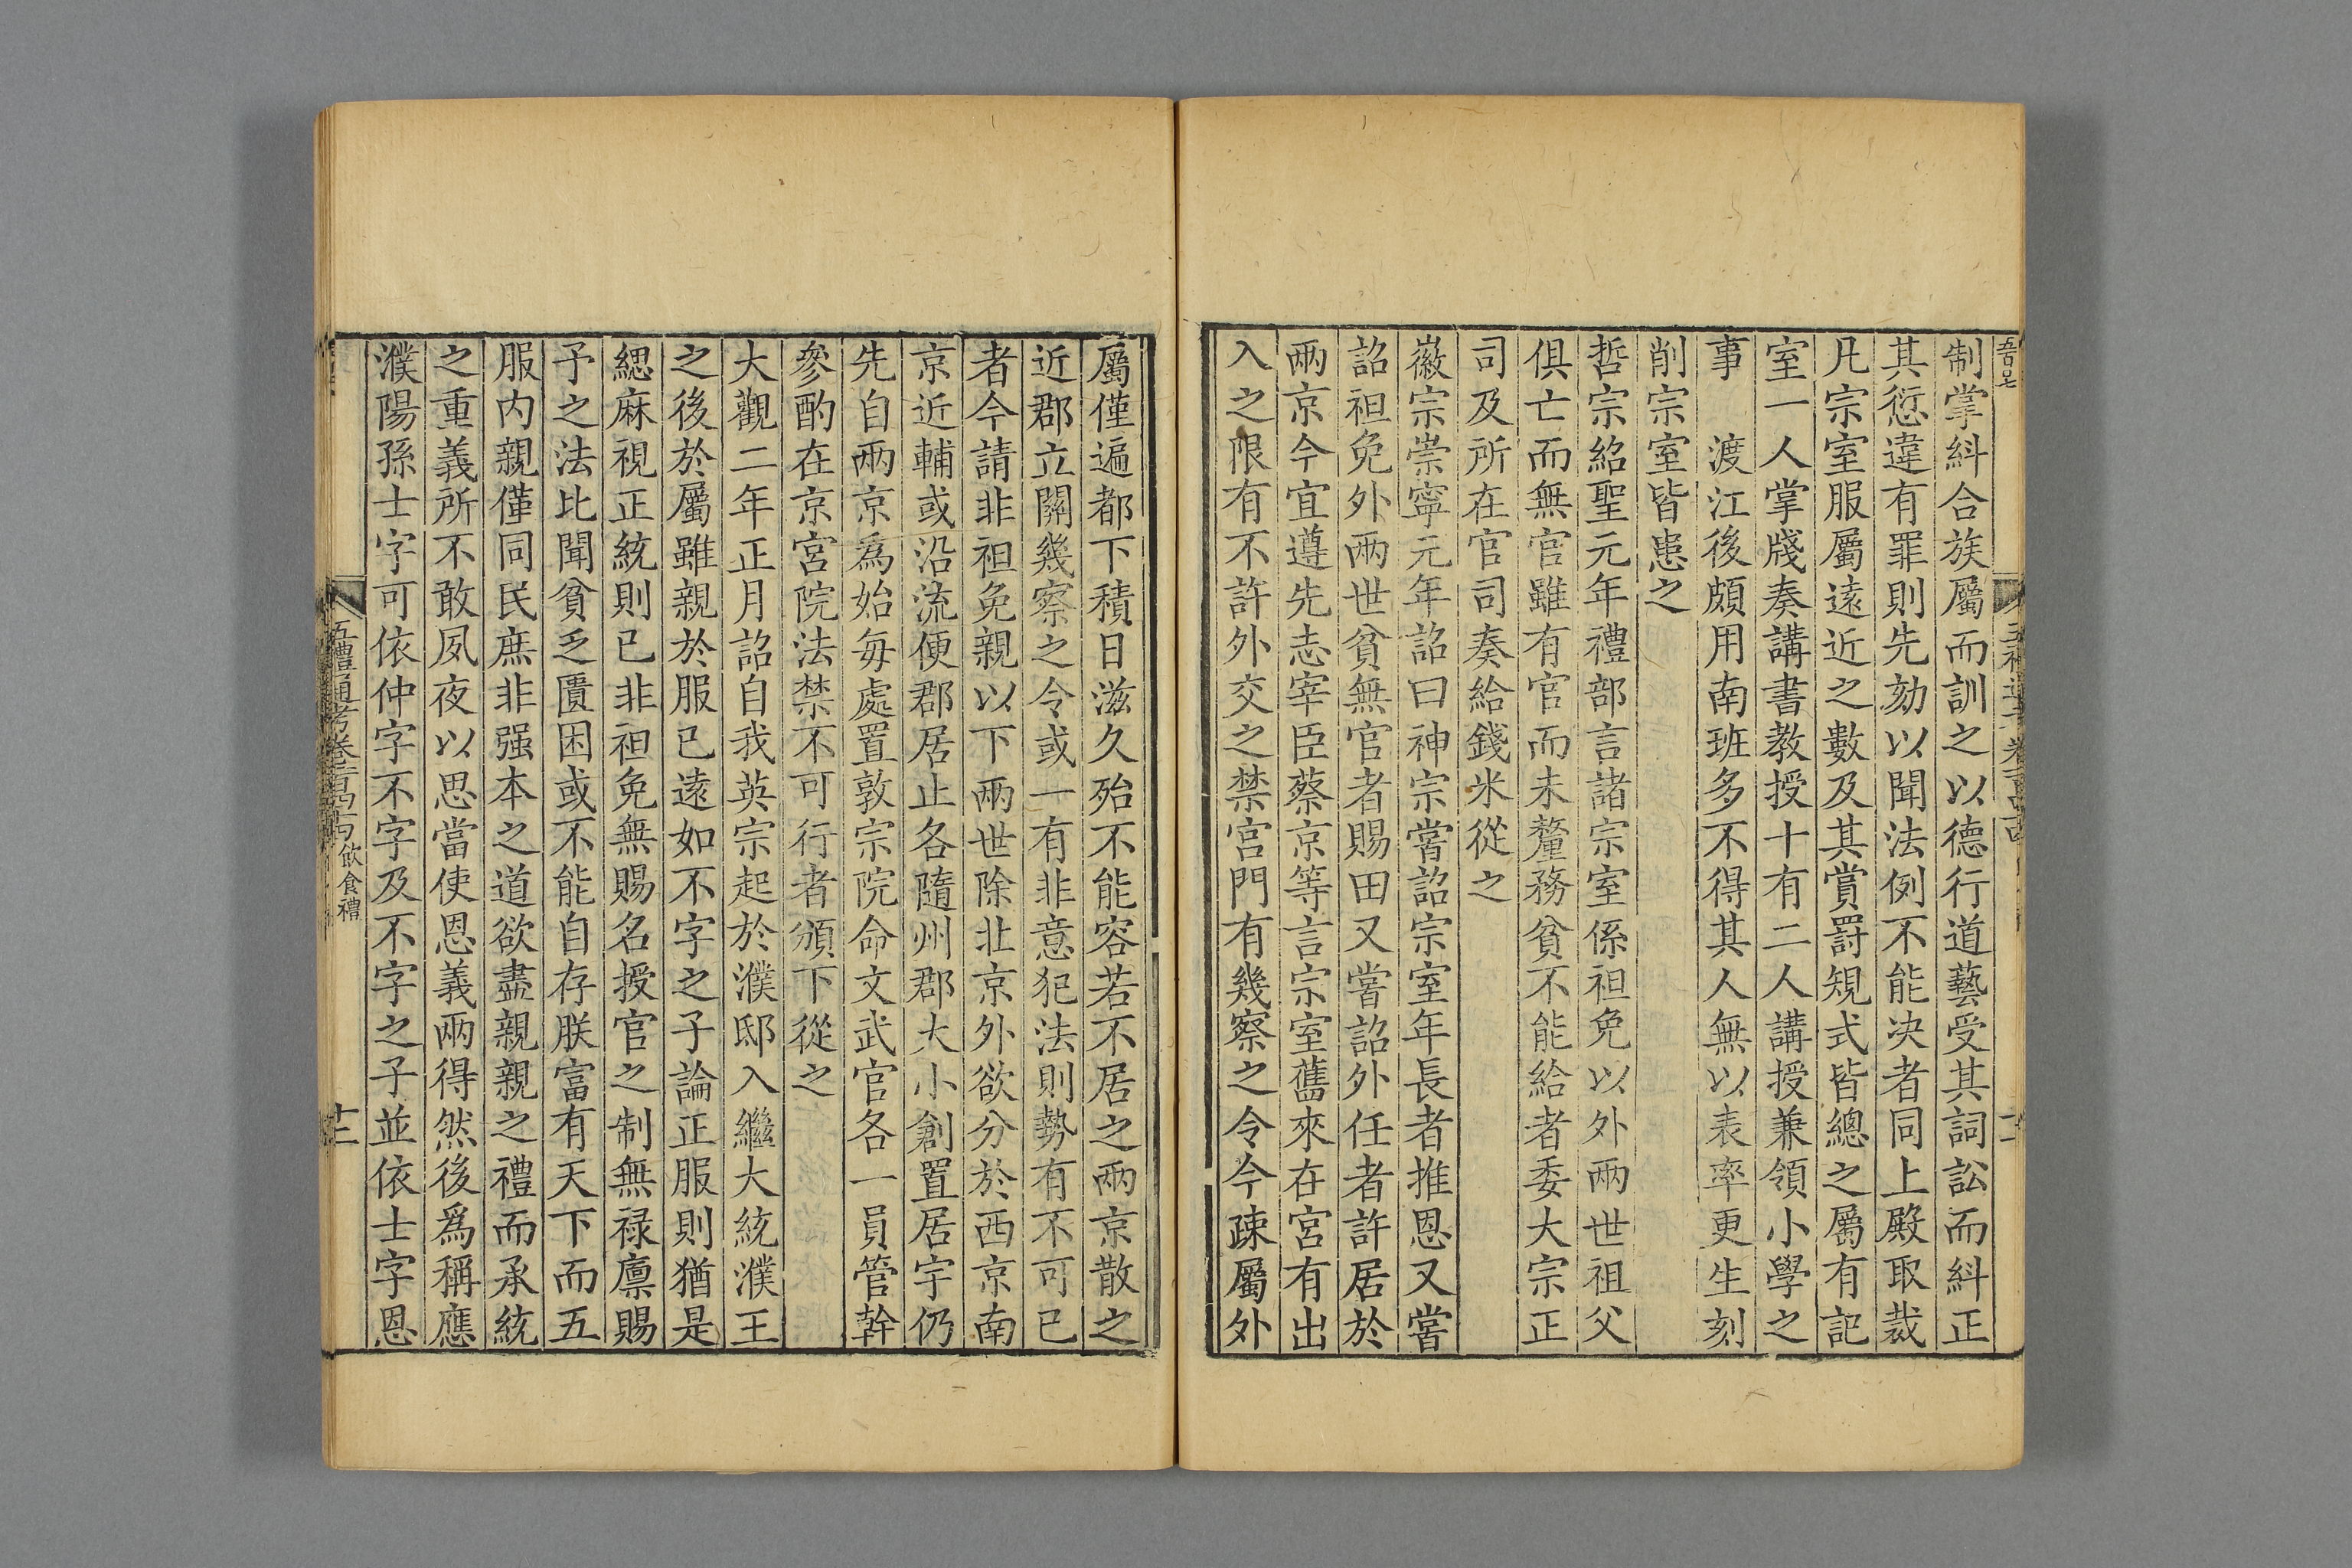 制掌糾合族屬而訓之以德行道藝受其詞訟而糾正
其愆違有罪則先劾以聞法例不能决者同上殿取裁
凡宗室服屬遠近之數及其賞罰規式皆總之屬有記
室一人掌牋奏講書教授十有二人講授兼領小學之
事　渡江後頗用南班多不得其人無以表率更生刻
削宗室皆患之
哲宗紹聖元年禮部言諸宗室係袒免以外兩世祖父
俱亡而無官雖有官而未釐務貧不能給者委大宗正
司及所在官司奏給錢米從之
徽宗崇寧元年詔曰神宗嘗詔宗室年長者推恩又嘗
詔袒免外兩世貧無官者賜田又嘗詔外任者許居於
兩京今宜遵先志宰臣蔡京等言宗室舊來在宮有出
入之限有不許外交之禁宮門有幾察之令今疎屬外
屬僅遍都下積日滋久殆不能容若不居之兩京散之
近郡立關幾察之令或一有非意犯法則勢有不可已
者今請非袒免親以下兩世除北京外欲分於西京南
京近輔或沿流便郡居止各隨州郡大小創置居宇仍
先自兩京爲始毎處置敦宗院命文武官各一員管幹
參酌在京宮院法禁不可行者頒下從之
大觀二年正月詔自我英宗起於濮邸入繼大統濮王
之後於屬雖親於服已遠如不字之子論正服則猶是
緦麻視正統則已非袒免無賜名授官之制無祿廩賜
予之法比聞貧乏匱困或不能自存朕富有天下而五
服内親僅同民庶非强本之道欲盡親親之禮而承統
之重義所不敢夙夜以思當使恩義兩得然後爲稱應
濮陽孫士字可依仲字不字及不字之子並依士字恩
五禮通考卷一百四十五 飲食禮 十二